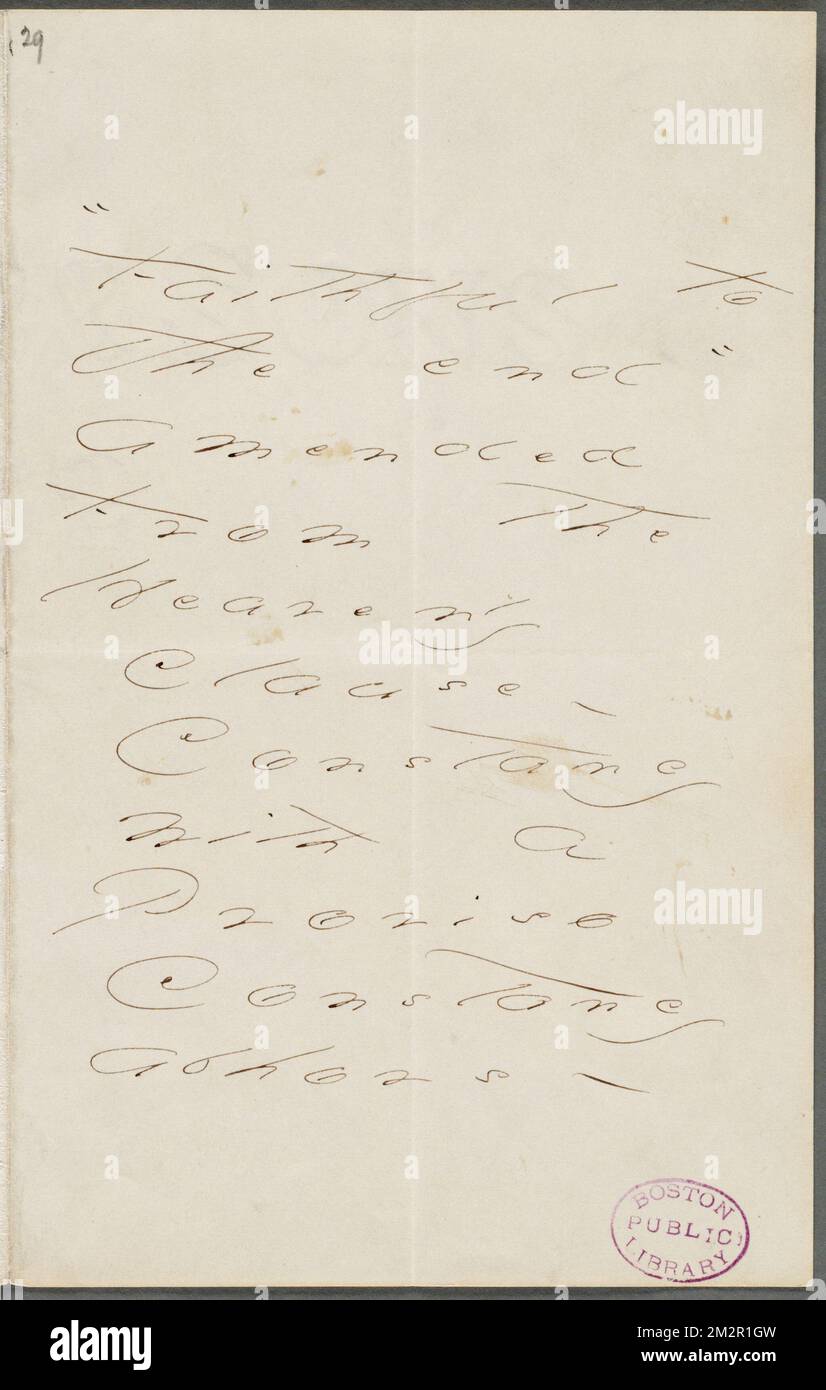 29
"
Faithful to
The end "
amended
From the
Heavenly
Clause –
Constancy
with a
Proviso
Constancy
abhors –
BOSTON
PUBLIC
LIBRARY
alamy
Image ID: 2M2R1GW
www.alamy.com